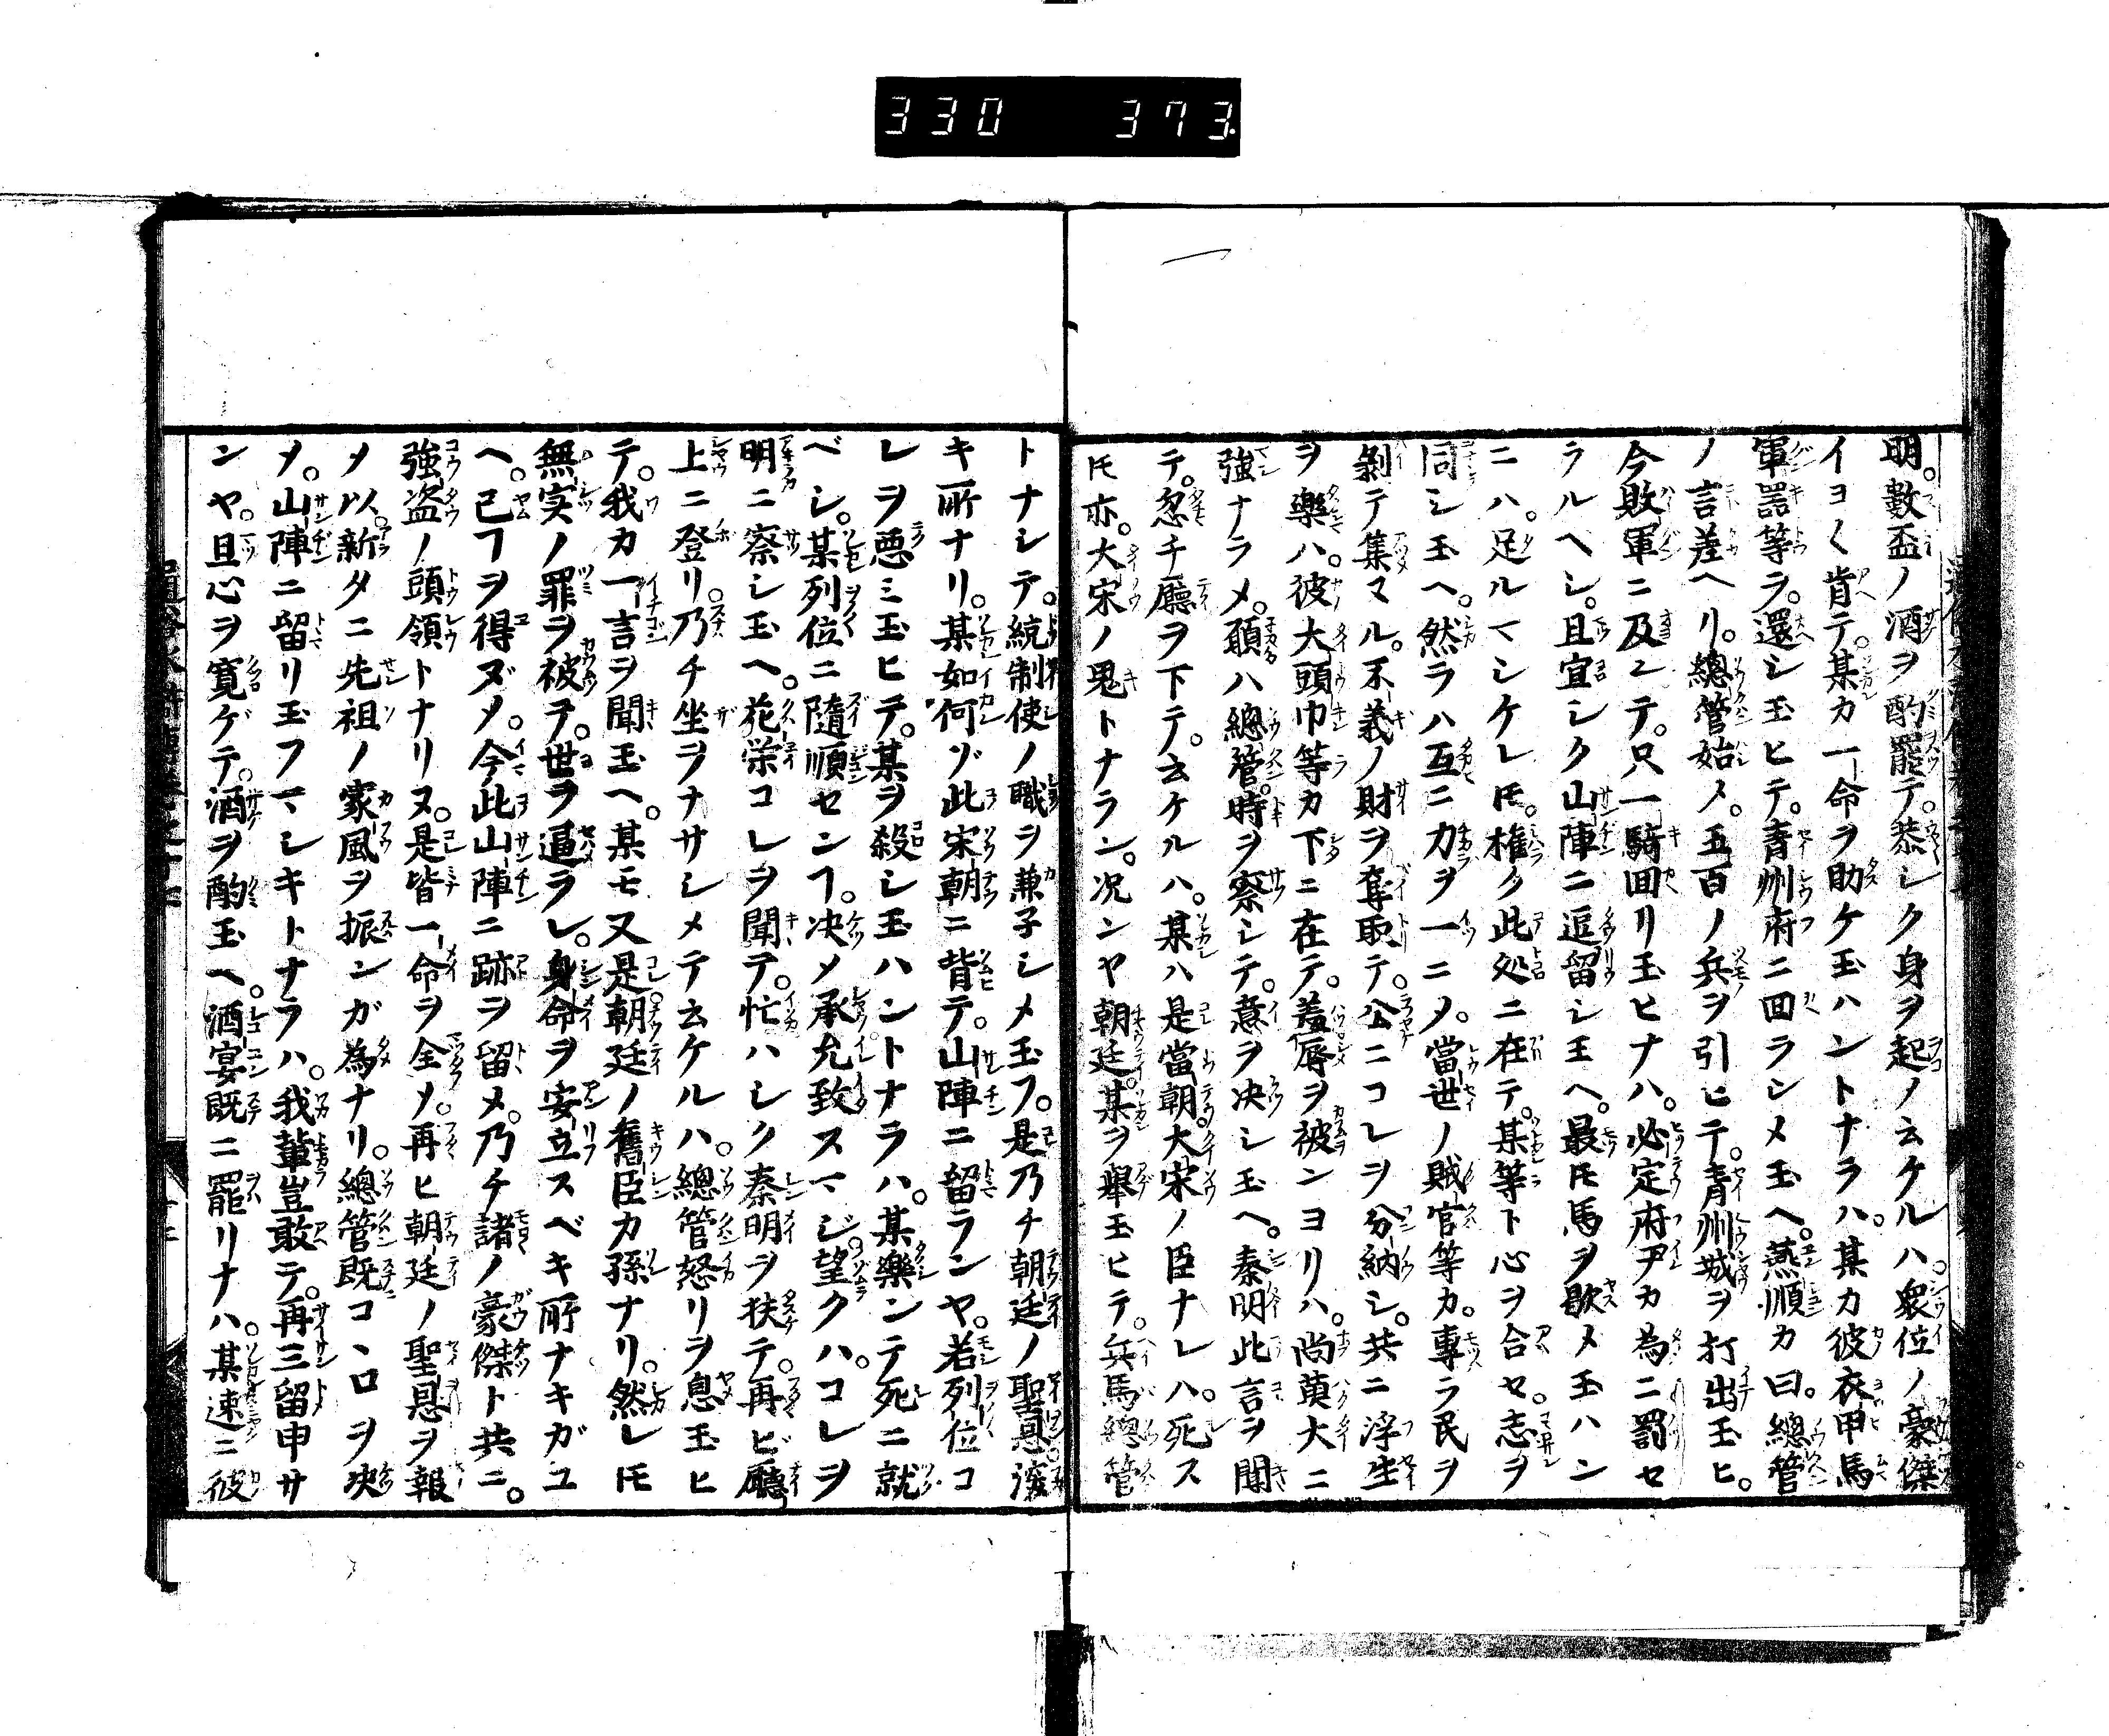 330 373
明。數盃ノ酒ヲ酌罷テ。恭シク身ヲ起ノ云ケルハ。衆位ノ豪傑
イヨく肯テ。某カ一命ヲ助ケ玉ハントナラハ。某カ彼衣甲馬
軍器等ラ。還シ玉ヒテ。青州府ニ回ラシメ玉ヘ。燕順カ曰。總管
ノ言差ヘリ。總管始メ。五百ノ兵ヲ引ヒテ。青州城ヲ打出玉ヒ。
今敗軍ニ及ンテ。只一騎回リ玉ヒナハ。必定府尹カ為ニ罰セ
ラルヘシ。且宜シク山陣ニ逗留シ玉ヘ。最モ馬ヲ歇メ玉ハン
ニハ。足ルマシケレ𪜈。権ク此処ニ在テ。某等ト心ヲ合セ。志ヲ
同シ玉ヘ。然ラハ互ニ力ヲ一ニメ。當世ノ賊官等カ。專ラ民ヲ
剝テ集マル。不義ノ財ヲ奪取テ。公ニコレヲ分納シ。共ニ浮生
ヲ樂ハ。彼大頭巾等カ下ニ在テ。羞辱ヲ被ンヨリハ。尚莫大ニ
強ナラメ。願ハ總管。時ヲ察シテ。意ヲ决シ玉ヘ。秦明此言ヲ聞
テ。忽チ廳ヲ下テ。云ケルハ。某ハ是當朝。大宋ノ臣ナレハ。死ス
𪜈亦。大宋ノ鬼トナラン。况ンヤ朝廷。某ヲ舉玉ヒテ。兵馬總管
トナシテ。統制使ノ職ヲ兼子シメ玉フ。是乃チ朝廷ノ聖恩深
キ所ナリ。某如何ゾ此宋朝ニ背テ。山陣ニ留ランヤ。若列位コ
レヲ悪ミ玉ヒテ。某ヲ殺シ玉ハントナラハ。某樂ンテ死ニ就
ベシ。某列位ニ隨順センヿ。决メ承允致スマジ。望クハ。コレヲ
明ニ察シ玉ヘ。花栄コレヲ聞テ。忙ハシク秦明ヲ扶テ。再ビ廳
上ニ登リ。乃チ坐ヲナサシメテ云ケルハ。總管怒リヲ息玉ヒ
テ。我カ一言ヲ聞玉ヘ。某モ又是朝廷ノ舊臣カ孫ナリ。然レ𪜈
無実ノ罪ヲ被テ。世ヲ逼ラレ。身命ヲ安立スベキ所ナキガユ
ヘ。已ヿヲ得ズメ。今此山陣ニ跡ヲ留メ。乃チ諸ノ豪傑ト共ニ。
強盗ノ頭領トナリヌ。是皆一命ヲ全メ。再ヒ朝廷ノ聖恩ヲ報
メ以。新タニ先祖ノ家風ヲ振ンガ為ナリ。總管既コヽロヲ决
メ。山陣ニ留リ玉フマシキトナラハ。我輩豈敢テ。再三留申サ
ンヤ。且心ヲ寛ゲテ。酒ヲ酌玉ヘ。酒宴既ニ罷リナハ。某速ニ彼